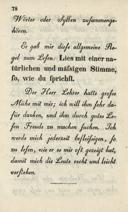 78
Wörter oder Sylben zusammenge-
hören.
Es gab mir diese allgemeine Re-
gel zum Lesen: Lies mit einer na-
türlichen und mäßigen Stimme,
so, wie du sprichst.
Die Herr Lehrer hatte große
Mühe mit mir; ich will ihm sehr da-
für danken, und ihm durch gutes Le-
sen Freude zu machen suchen. Ich
werde mich jederzeit befleißigen, so
zu lesen, wie er es oft vorgelesen hat,
damit mich die Leute recht und leicht
verstehen.